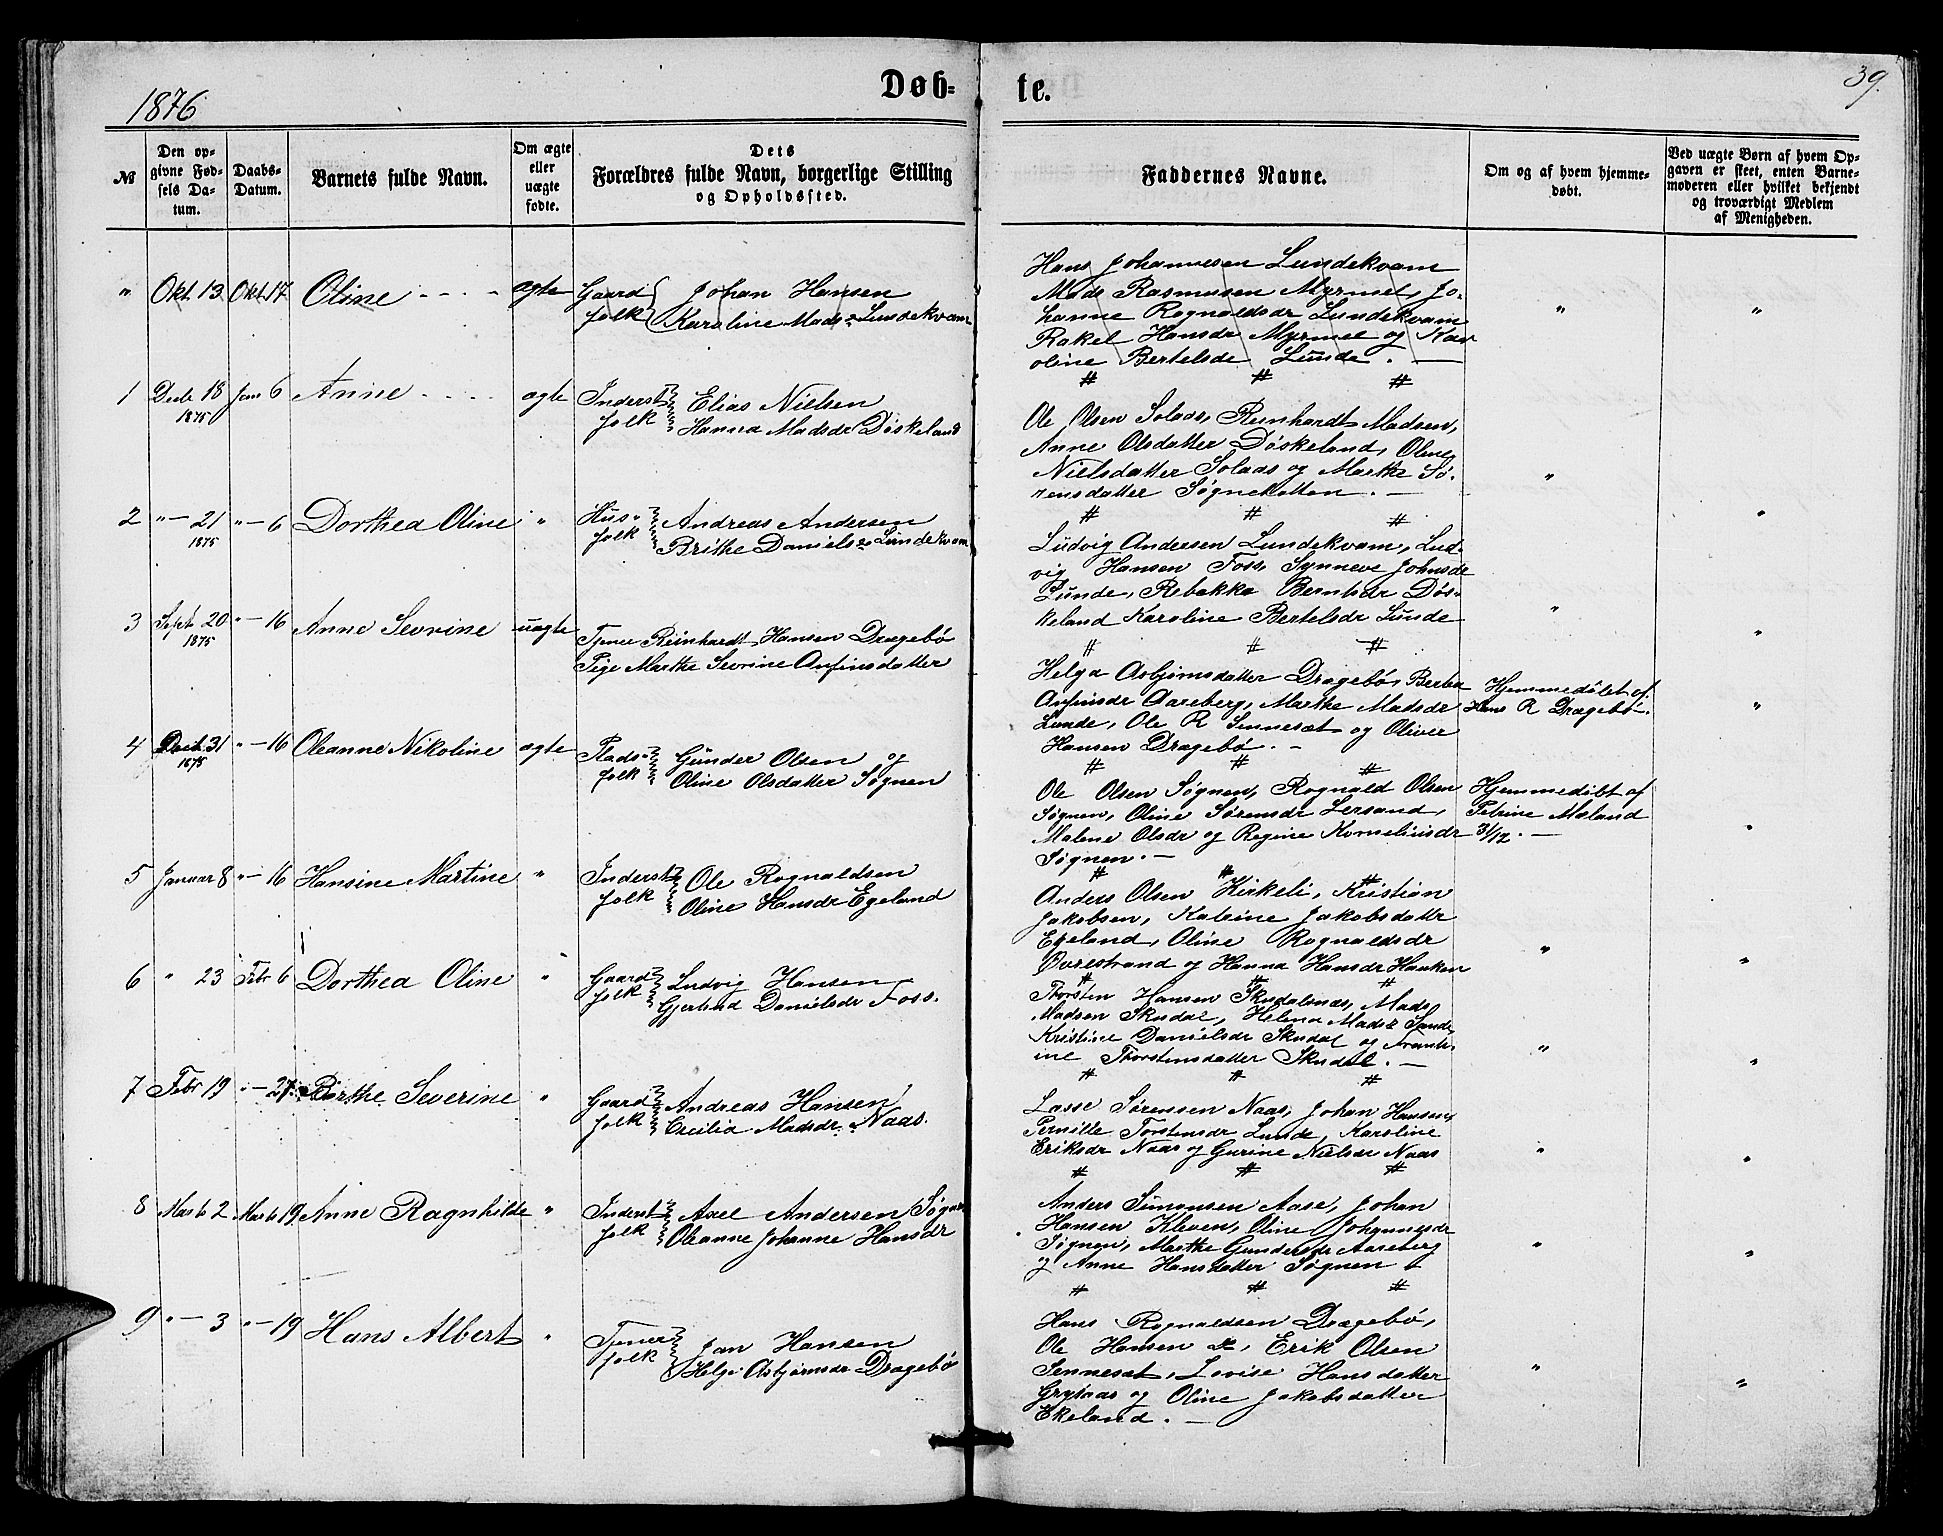 1876
Døb-
te.
39.
№
Den op-
givne Fød-
sels Da-
tum.
Daabs-
Datum.
Barnets fulde Navn.
Om ægte
eller
uægte
fødte.
Dets
Forældres fulde Navn, borgerlige Stilling
og Opholdssted.
Faddernes Navne.
Om og af hvem hjemme-
døbt.
Ved uægte Børn af hvem Op-
gaven er skeet, enten Barne-
moderen eller hvilket bekjendt
og troværdigt Medlem
af Menigheden.
" Okt 13 Okt 17 Oline - - - - ægte Gaard Johan Hansen
folk Karoline Mads Lundekvam
Hans Johannesen Lundekvam
Mads Rasmusen Myrmel, Jo-
hanne Rognaldsdr Lundekvam
Rakel Hansdr Myrmel og Kar
oline Bertelsdr Lunde. —
" "
# # #
1 Decb 18 Jan 6 Anne - - - - ægte Inderst Elias Nielsen
1875 folk Hanna Madsdr Døskeland
Ole Olsen Solaas, Reinhardt Madsen,
Anne Olsdatter Døskeland, Oline
Nielsdatter Solaas og Marthe Sø-
rensdatter Søgnekotten. —
"
# # #
2 " — 21 " — 6 Dorthea Oline " Hus- Andreas Andersen
1875 folk Brithe Daniels Lundekvam
Ludvig Andersen Lundekvam, Lud-
vig Hansen Foss, Synneve Johnsdr
Lunde, Rebekka Berntsdr Døs-
keland Karoline Bertelsdr Lunde
" "
# # #
3 Septb 20 " — 16 Anne Sevrine uægte Tjener Reinhardt Hansen Drægebø
1875 Pige Marthe Sevrine Anfinsdatter
Helga Asbjørnsdatter Drægebø, Berthe
Anfinsdr Aareberg, Marthe Madsdr
Lunde, Ole R Sennesæt og Oliver
Hansen Drægebø. —
Hjemmedøbt af
Hans R Drægebø.
" "
# # #
4 Decb. 31 " — 16 Oleanne Nikoline ægte Plads- Gunder Olsen og
1875 folk Oline Olsdatter Søgnen
Ole Olsen Søgnen, Rognald Olsen
Søgnen, Oline Sørensdr Lersand,
Malene Olsdr og Regine Korneliusdr
Søgnen. —
Hjemmedøbt af
Petrine Mæland
31/12. —
"
# # #
5 Januar 8 " — 16 Hansine Martine " Inderst Ole Rognaldsen
folk Oline Hansdr Egeland
Anders Olsen Kirkeli, Kristian
Jakobsen, Katrine Jakobsdatter
Egeland, Oline Rognaldsdr
Øvrestrand og Hanna Hansdr Hauken
" "
# # #
6 " 23 Febr 6 Dorthea Oline " Gaard Ludvig Hansen
folk Gjertrud Danielsdr Foss.
Thorsten Hansen Skudalsnæs, Mads
Madsen Skudal, Helena Madsd Sande
Kristine Danielsdr Skudal og Frants-
ine Thorstensdatter Skudal. —
" "
# # #
7 Febr 19 " — 27 Birthe Severine " Gaard Andreas Hansen
folk Cecilia Madsdr Naas.
Lasse Sørensen Naas, Johan Hansen,
Pernille Torstensdr Lunde, Karoline
Eriksdr Naas og Gurine Nielsdr Naas
" "
# # #
8 Marts 2 Marts 19 Anne Ragnhilde " Inderst Axel Andersen Søgnen
folk Oleanne Johanne Hansdr
Anders Simonsen Aase, Johan
Hansen Kleven, Oline Johannesdr
Søgnen, Marthe Gundersdr Aareberg
og Anne Hansdatter Søgnen
" "
# # #
9 " — 3 " — 19 Hans Albert " Tjener Jan Hansen
folk Helga Asbjørnsdr Drægebø
Hans Rognaldsen Drægebø,
Ole Hansen do, Erik Olsen
Sennesæt, Lovise Hansdatter
Grytaas og Oline Jakobsdatter
Ekeland. —
" "